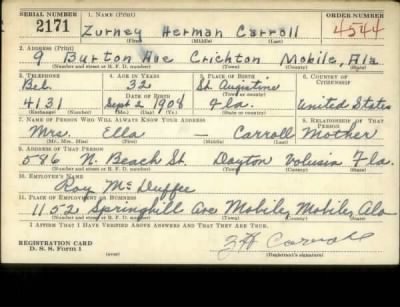 SERIAL NUMBER 1. NAME (Print) ORDER NUMBER
2171 Zurney Herman Carroll 4544
(First) (Middle) (Last)
2. ADDRESS (Print)
9 Burton Ave Crichton Mobile, Ala.
(Number and street or R. F. D. number) (Town) (County) (State)
3. TELEPHONE 4. AGE IN YEARS 5. PLACE OF BIRTH 6. COUNTRY OF CITIZENSHIP
Bel. 32 St. Augustine
DATE OF BIRTH
4131 Sept 2 1908 Fla. United States
(Exchange) (Number) (Mo.) (Day) (Yr.) (State or country)
7. NAME OF PERSON WHO WILL ALWAYS KNOW YOUR ADDRESS 8. RELATIONSHIP OF THAT PERSON
Mrs. Ella — Carroll Mother
(Mr., Mrs., Miss) (First) (Middle) (Last)
9. ADDRESS OF THAT PERSON
586 N. Beach St. Dayton Volusia Fla.
(Number and street or R. F. D. number) (Town) (County) (State)
10. EMPLOYER'S NAME
Roy McDuffee
11. PLACE OF EMPLOYMENT OR BUSINESS
1152 Springhill Ave Mobile, Mobile, Ala
(Number and street or R. F. D. number) (Town) (County) (State)
I AFFIRM THAT I HAVE VERIFIED ABOVE ANSWERS AND THAT THEY ARE TRUE.
REGISTRATION CARD
D. S. S. Form 1 (over) Z H Carroll
(Registrant's signature)